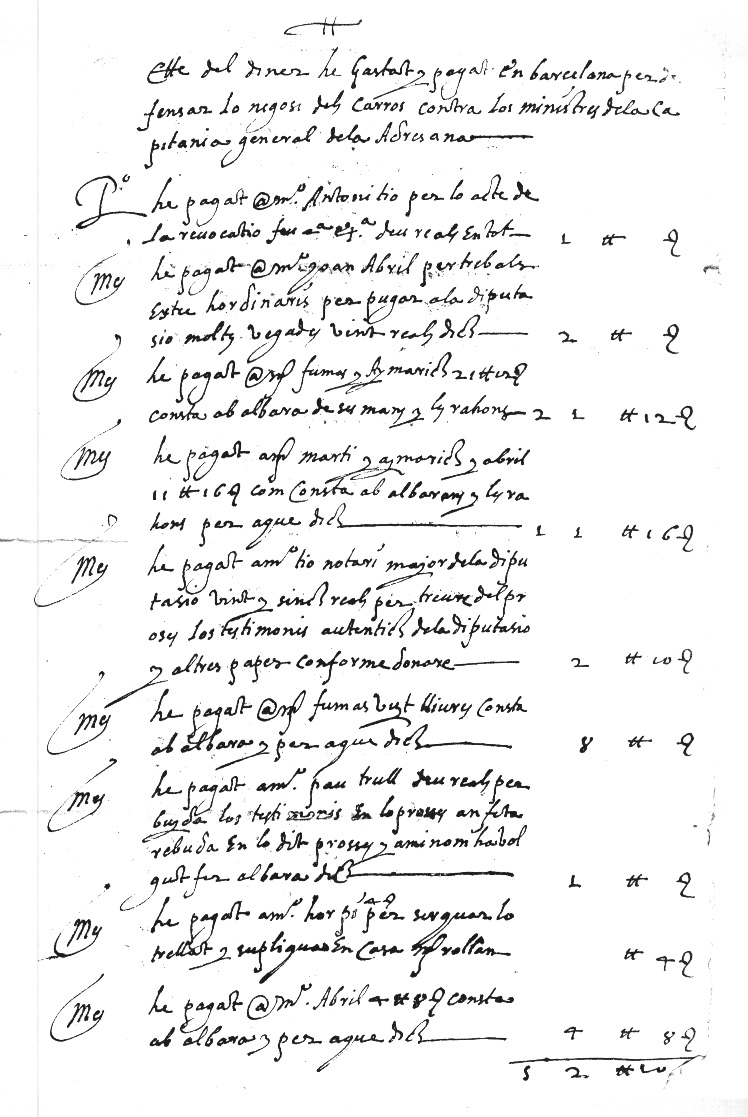 †
Cte del diner he Gastat y pagat En barcelona per de
fensar lo negosi dels Carros contra los ministres dela Ca
pitania general dela Adresana
P.o he pagat @ m.o Antoni tio per lo acte de
la revocatio deu reals En tot 1 ₶ 8
Mes he pagat @ m.o Joan Abril per trebals
Extre hordinaris per pugar ala diputa
sio molts vegades vint reals dich 2 ₶ 8
Mes he pagat @ mr fumas y Aymarich 21 ₶ 12 8
consta ab albara de ses mans y les rahons 2 1 ₶ 12 8
Mes he pagat a mr marti y aymarich y abril
11 ₶ 16 8 com Consta ab albarans y les ra
hons per aque dich 1 1 ₶ 16 8
Mes he pagat a m.o tio notari major dela dipu
tasio vint y sinch reals per treure del pr
oses los testimonis autentichs dela diputasio
y altres papers conforme donare 2 ₶ 10 8
Mes he pagat @ mr fumas vuyt lliures Consta
ab albara y per aque dich 8 ₶ 8
Mes he pagat a m.o pau trull deu reals per
los testimonis En lo prosses an feta
rebuda En lo dit prosses y a mi no m ha vol
gut fer albara dich 1 ₶ 8
Mes he pagat a m.o hor 4 8 per serquar lo
trellat y supliquasio En Casa mr rollan ₶ 4 8
Mes he pagat @ m.o Abril 4 ₶ 8 8 consta
ab albara y per aque dich 4 ₶ 8 8
5 2 ₶ 10